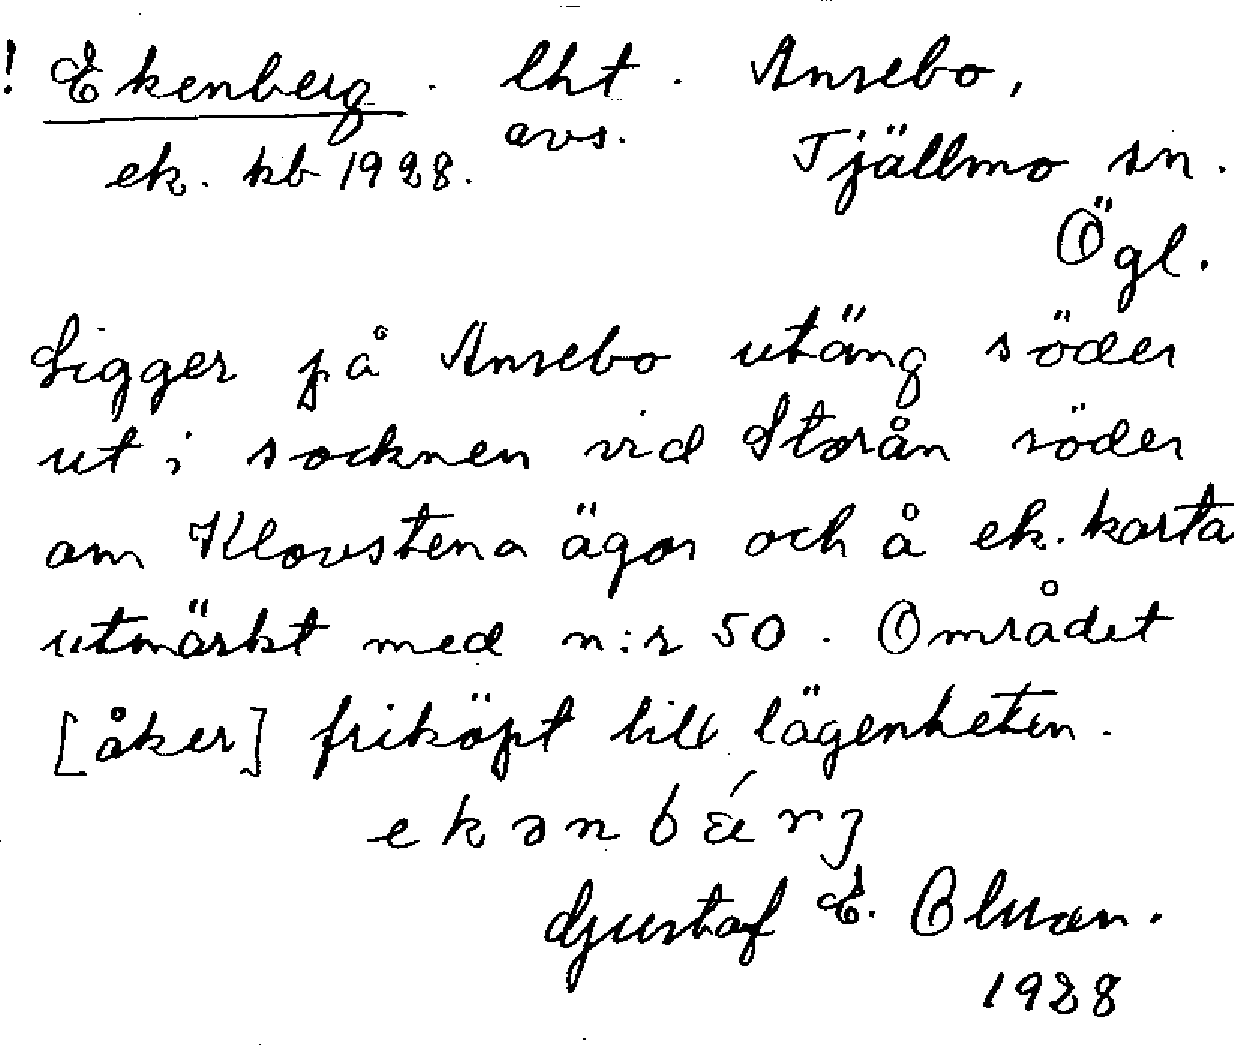 ! Ekenberg. lht. Ansebo,
avs.
ek. kb 1928. Tjällmo sn.
Ögl.
Ligger på Ansebo utäng söder
ut i socknen vid Storån söder
om Klovstena ägor och å ek. karta
utmärkt med n:r 50. Området
[åker] friköpt till lägenheten.
ekənbǽrj
Gustaf E. Olsson.
1928